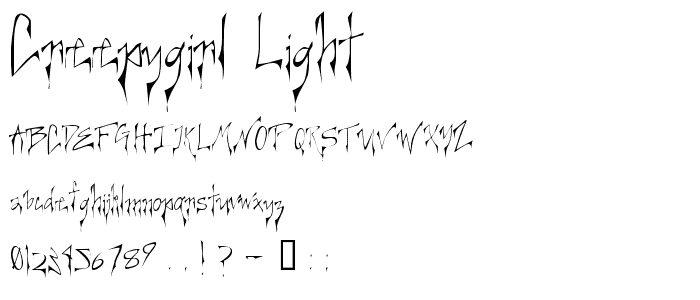 Creepygirl Light
ABCDEFGHIJKLMNOPQRSTUVWXYZ
abcdefghijklmnopqrstuvwxyz
0123456789 ..!? - :;